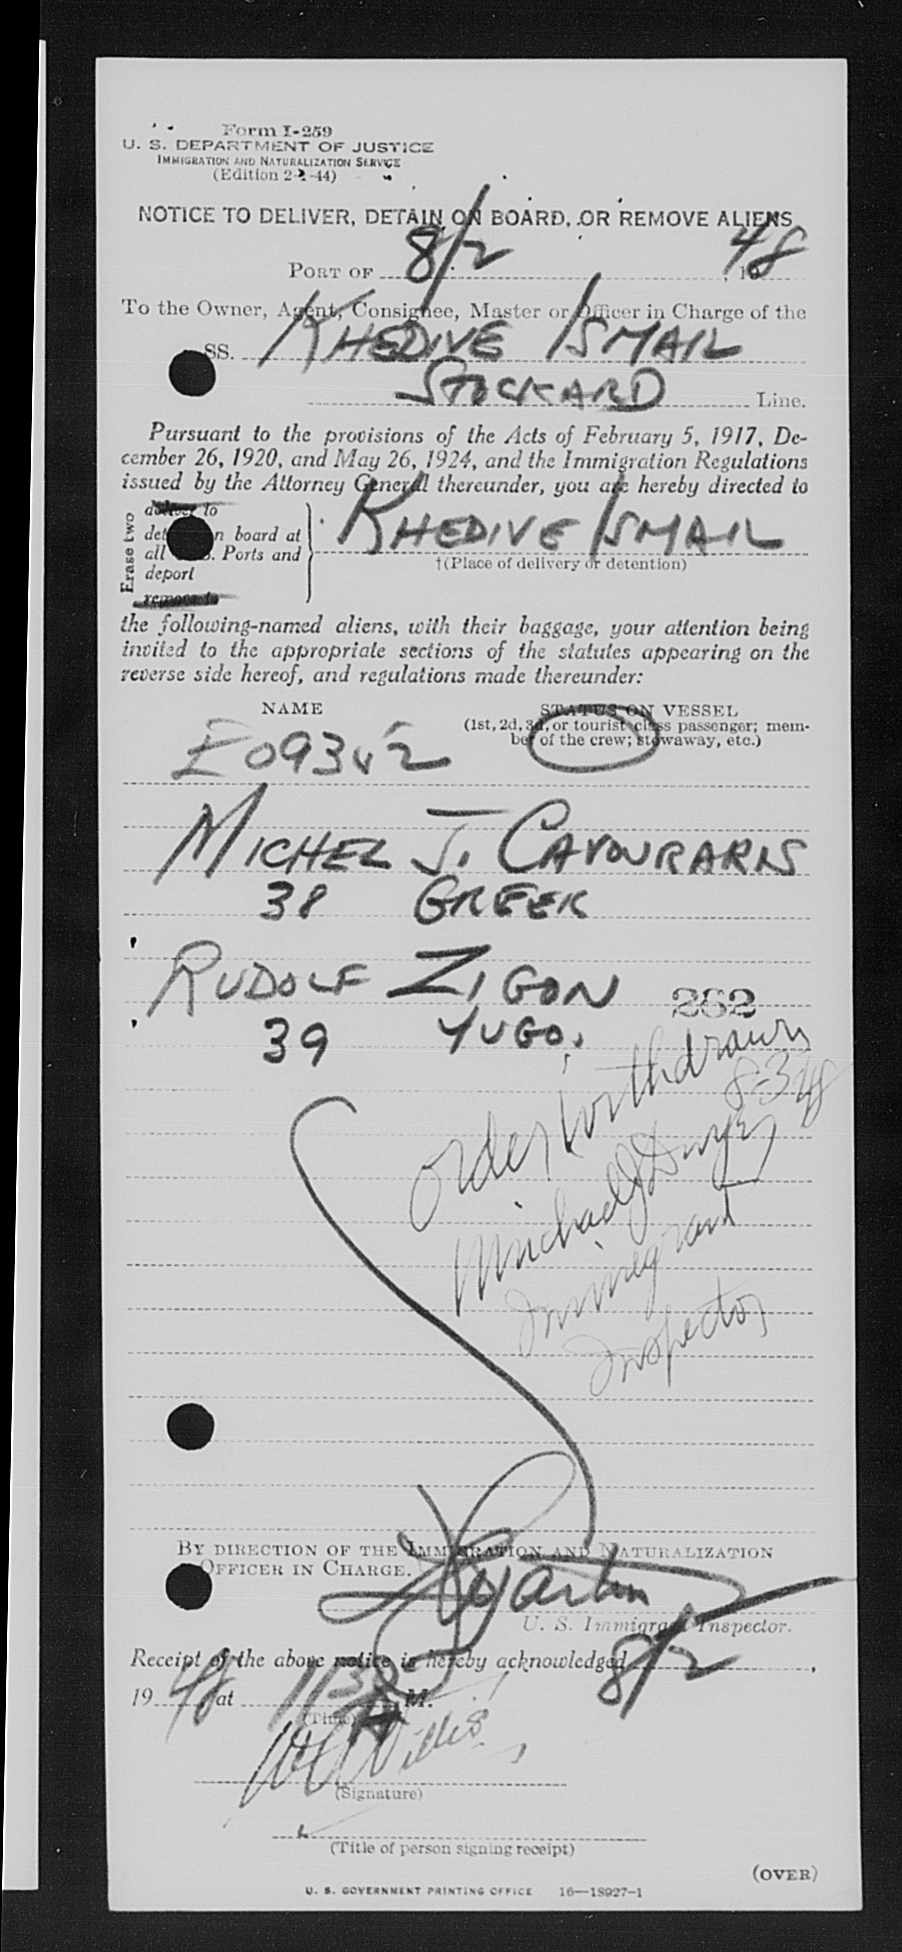 Form I-259
U. S. DEPARTMENT OF JUSTICE
IMMIGRATION AND NATURALIZATION SERVICE
(Edition 2-1-44)
NOTICE TO DELIVER, DETAIN ON BOARD, OR REMOVE ALIENS
PORT OF 8/2, 1948
To the Owner, Agent, Consignee, Master or Officer in Charge of the
SS. KHEDIVE ISMAIL
STOCKARD Line.
Pursuant to the provisions of the Acts of February 5, 1917, De-
cember 26, 1920, and May 26, 1924, and the Immigration Regulations
issued by the Attorney General thereunder, you are hereby directed to
Erase two
deliver to
det n board at
all . Ports and
deport
remove to
KHEDIVE ISMAIL
†(Place of delivery or detention)
the following-named aliens, with their baggage, your attention being
invited to the appropriate sections of the statutes appearing on the
reverse side hereof, and regulations made thereunder:
NAME STATUS ON VESSEL
(1st, 2d, 3d, or tourist class passenger; mem-
ber of the crew; stowaway, etc.)
MICHEL J. CAVOURARIS
38 GREEK
RUDOLF ZIGON
262
39 YUGO.
Order Withdrawn
8-3-48
Michael J Dwyer
Immigrant
Inspector
BY DIRECTION OF THE IMMIGRATION AND NATURALIZATION
OFFICER IN CHARGE.
U. S. Immigrant Inspector.
Receipt of the above notice is hereby acknowledged 8/2,
1948 at 1135 A M.
(Time)
Willis
(Signature)
(Title of person signing receipt)
(OVER)
U. S. GOVERNMENT PRINTING OFFICE 16—18927-1